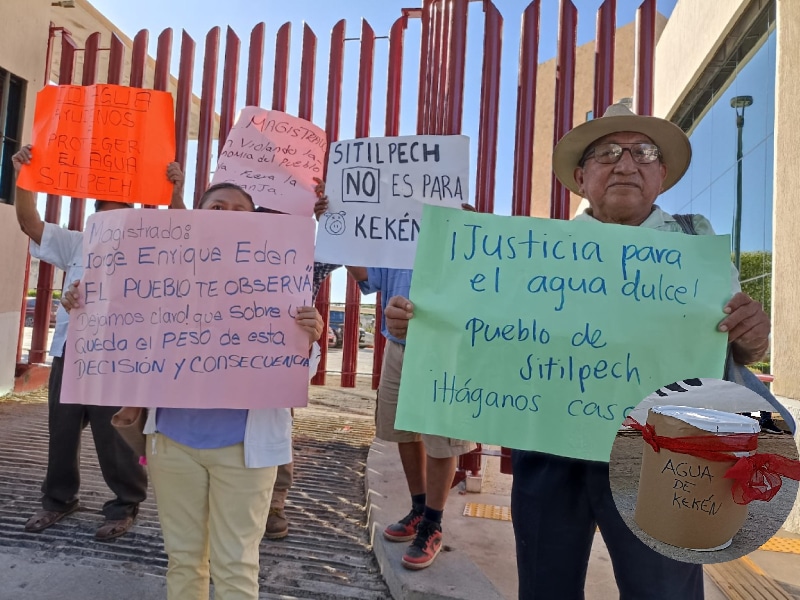 AYUDENOS
PROTEGER
EL AGUA
SITILPECH
MAGISTRADO
VIOLANDO
DEL PUEBLO
SITILPECH
NO ES PARA
KEKÉN
Magistrado:
Jorge Enrique Eden
¡EL PUEBLO TE OBSERVA!
Dejamos claro! que sobre U.
queda el PESO de esta
DECISIÓN y CONSECUENCIA
¡Justicia para
el agua dulce!
Pueblo de
Sitilpech
¡Háganos caso
AGUA
DE
KEKÉN